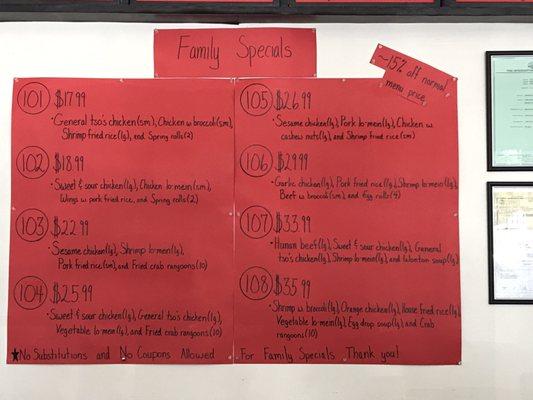 Family Specials
~15% off normal
menu price
101 $17.99
• General tso's chicken(sm), Chicken w broccoli(sm),
Shrimp fried rice(lg), and Spring rolls(2)
102 $18.99
• Sweet & sour chicken(lg), Chicken lo-mein(sm),
Wings w pork fried rice, and Spring rolls(2)
103 $22.99
• Sesame chicken(lg), Shrimp lo-mein(lg),
Pork fried rice(sm), and Fried crab rangoons(10)
104 $25.99
• Sweet & sour chicken(lg), General tso's chicken(lg),
Vegetable lo-mein(lg), and Fried crab rangoons(10)
105 $26.99
• Sesame chicken(lg), Pork lo-mein(lg), Chicken w
cashew nuts(lg), and Shrimp fried rice(sm)
106 $29.99
• Garlic chicken(lg), Pork fried rice(lg), Shrimp lo-mein(lg),
Beef w broccoli(sm), and Egg rolls(4)
107 $33.99
• Hunan beef(lg), Sweet & sour chicken(lg), General
tso's chicken(lg), Shrimp lo-mein(lg), and Wonton soup(lg)
108 $35.99
• Shrimp w broccoli(lg), Orange chicken(lg), House fried rice(lg),
Vegetable lo-mein(lg), Egg drop soup(lg), and Crab
rangoons(10)
★No Substitutions and No Coupons Allowed For Family Specials Thank you!